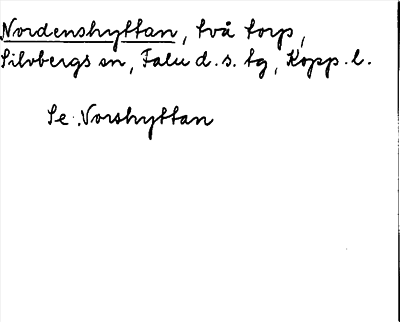 Nordenshyttan, två torp,
Silvbergs sn, Falu d. s. tg, Kopp. l.
Se Norshyttan